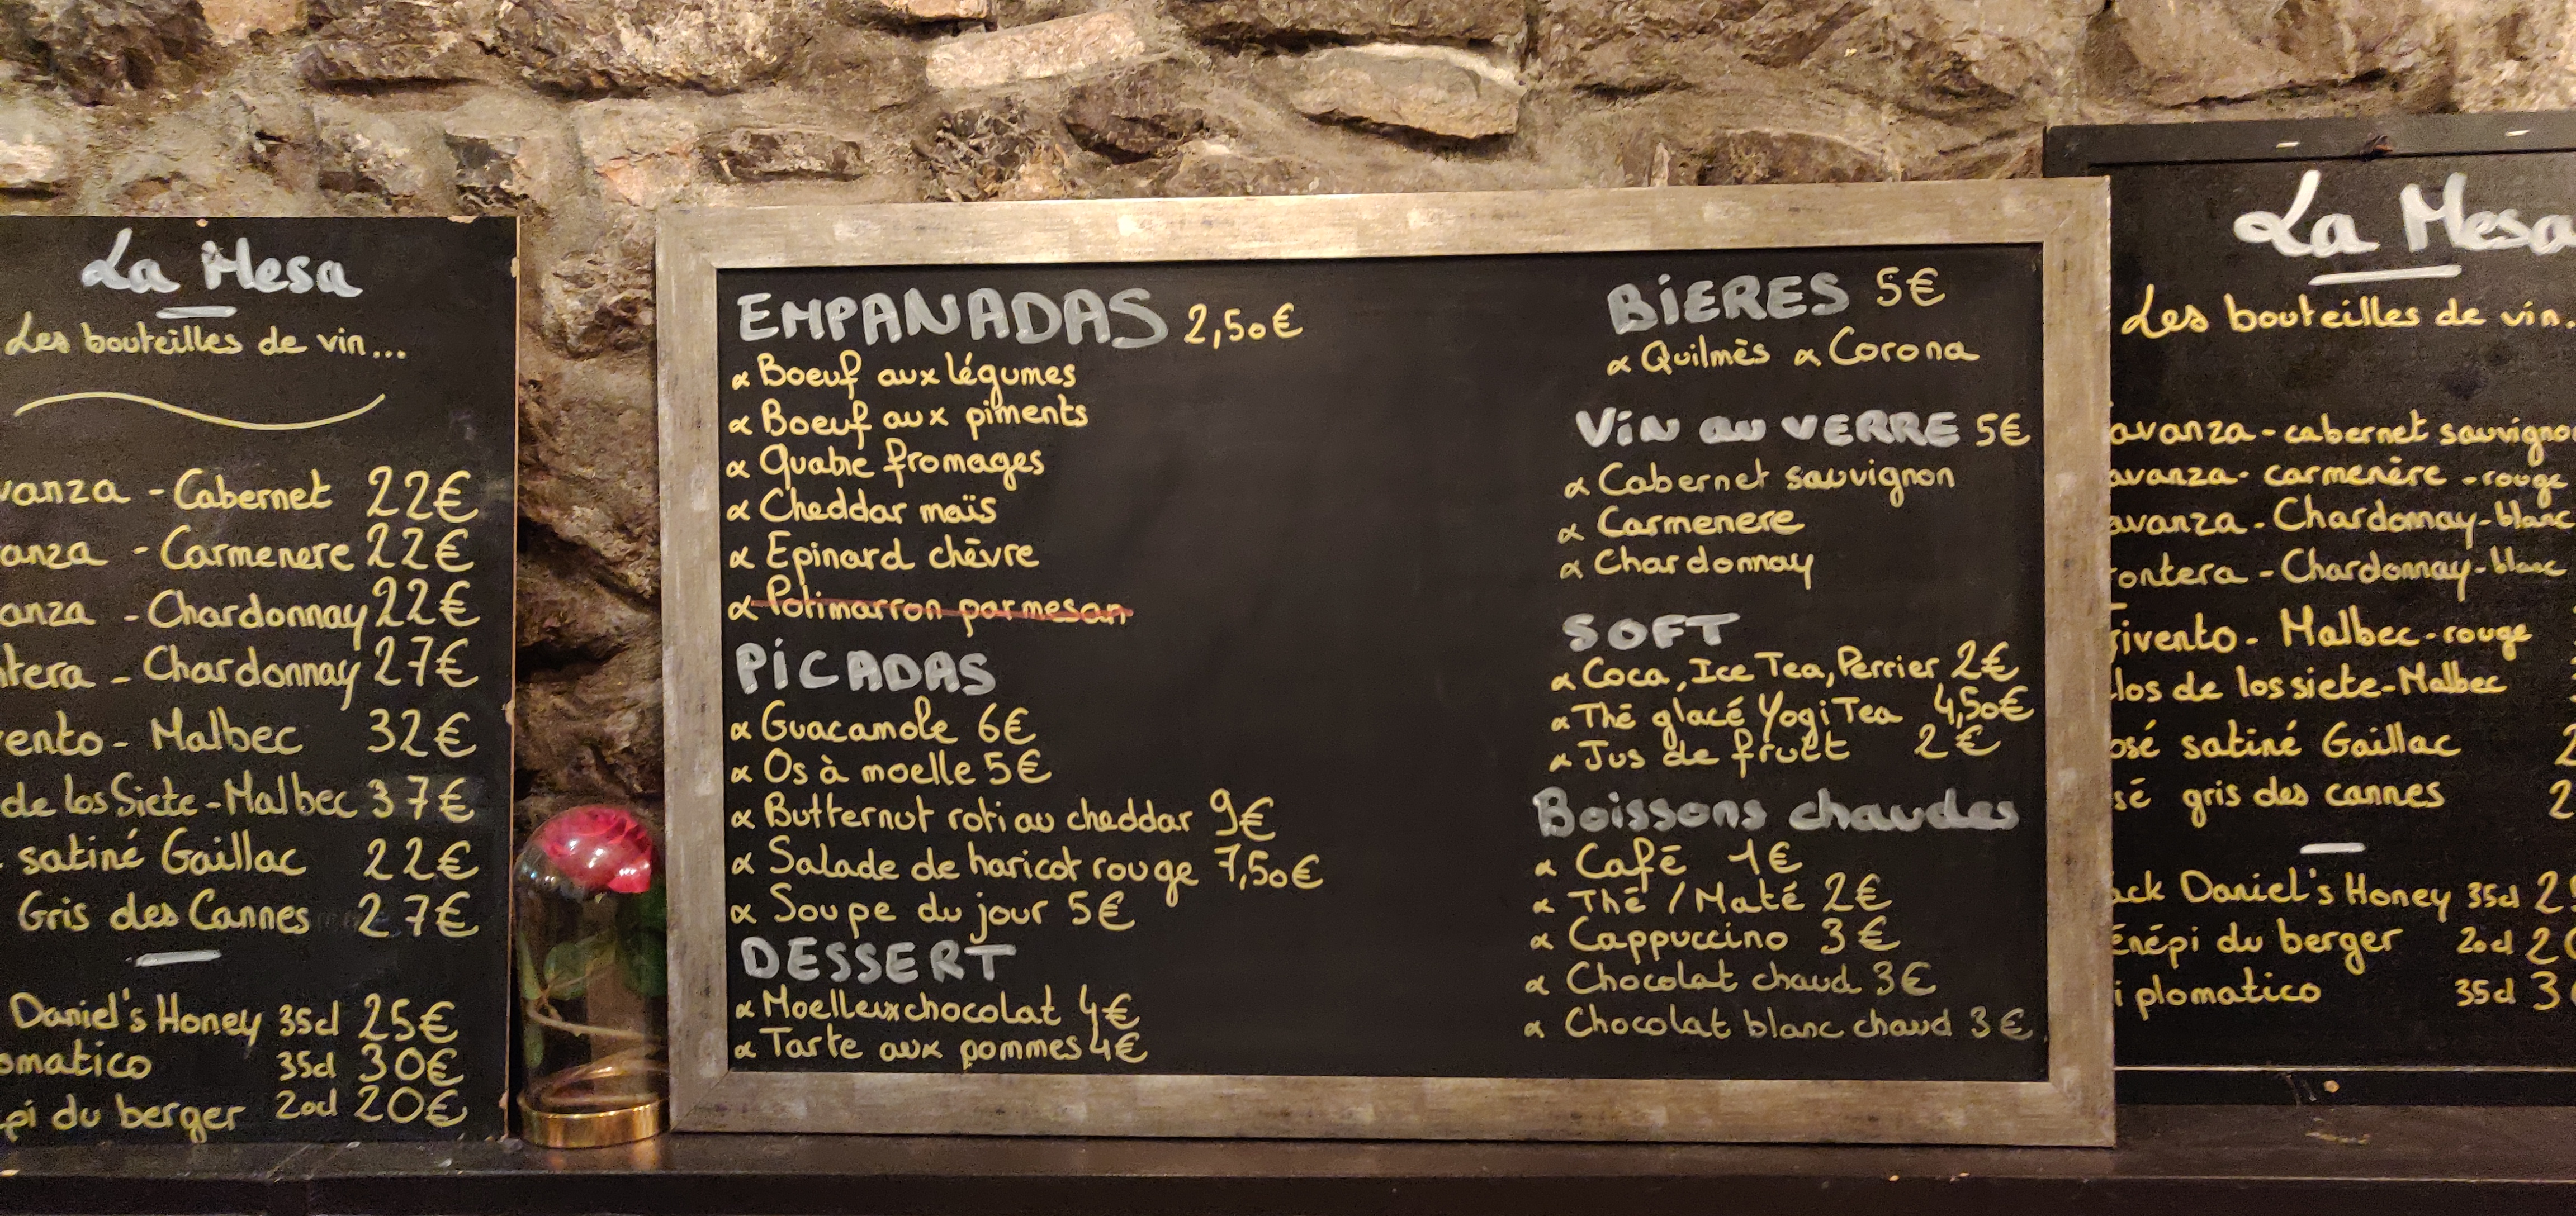 La Mesa
Les bouteilles de vin...
vanza - Cabernet 22€
anza - Carmenere 22€
anza - Chardonnay 22€
ntera - Chardonnay 27€
vento - Malbec 32€
de los Siete - Malbec 37€
satiné Gaillac 22€
Gris des Cannes 27€
Daniel's Honey 35cl 25€
omatico 35cl 30€
pi du berger 20cl 20€
EMPANADAS 2,50€
Boeuf aux légumes
Boeuf aux piments
Quatre fromages
Cheddar maïs
Epinard chèvre
Potimarron parmesan
PiCADAS
Guacamole 6€
Os à moelle 5€
Butternut roti au cheddar 9€
Salade de haricot rouge 7,50€
Soupe du jour 5€
DESSERT
Moelleux chocolat 4€
Tarte aux pommes 4€
BiERES 5€
Quilmès Corona
ViN au VERRE 5€
Cabernet sauvignon
Carmenere
Chardonnay
SOFT
Coca, Ice Tea, Perrier 2€
Thé glacé Yogi Tea 4,50€
Jus de fruit 2€
Boissons chaudes
Café 1€
Thé / Maté 2€
Cappuccino 3€
Chocolat chaud 3€
Chocolat blanc chaud 3€
La Mesa
Les bouteilles de vin..
avanza - cabernet sauvigno
avanza - carmenère - rouge
avanza - Chardonnay - blanc
rontera - Chardonnay - blanc
Trivento - Malbec - rouge
los de los siete - Malbec
osé satiné Gaillac 2
sé gris des cannes 2
ack Daniel's Honey 35cl 2
Énépi du berger 20cl 2
iplomatico 35cl 3